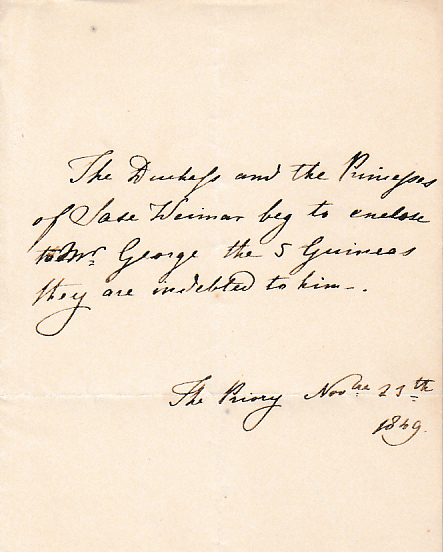 The Duchess and the Princesses
of Saxe Weimar beg to enclose
to Mr. George the 5 Guineas
they are indebted to him_.
The Priory Novbre 23th
1849.